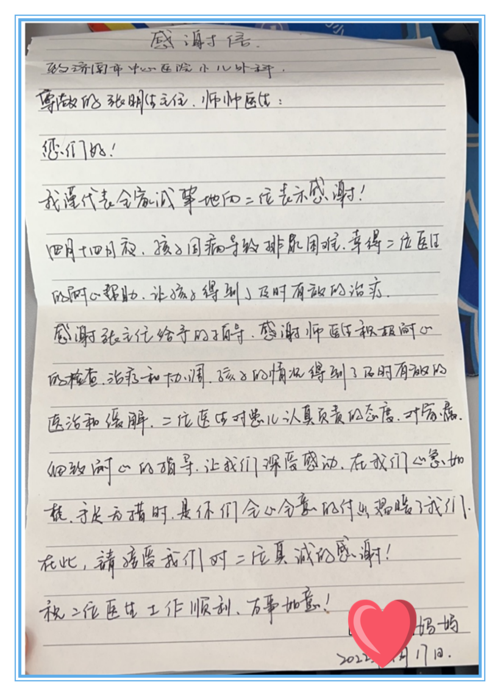 感谢信
致济南市中心医院小儿外科.
尊敬的张明生主任、师帅医生:
您们好!
我谨代表全家诚挚地向二位表示感谢!
四月十四日夜,孩子因病导致排尿困难.幸得二位医生
的耐心帮助,让孩子得到了及时有效的治疗.
感谢张主任给予的指导,感谢师医生积极耐心
的检查、治疗和协调,孩子的情况得到了及时有效的
医治和缓解.二位医生对患儿认真负责的态度,对家属
细致耐心的指导,让我们深受感动,在我们心急如
焚,手足无措时,是你们全心全意的付出温暖了我们.
在此,請接受我们对二位真诚的感谢!
祝二位医生工作顺利,万事如意!
妈妈
2022 月17日.